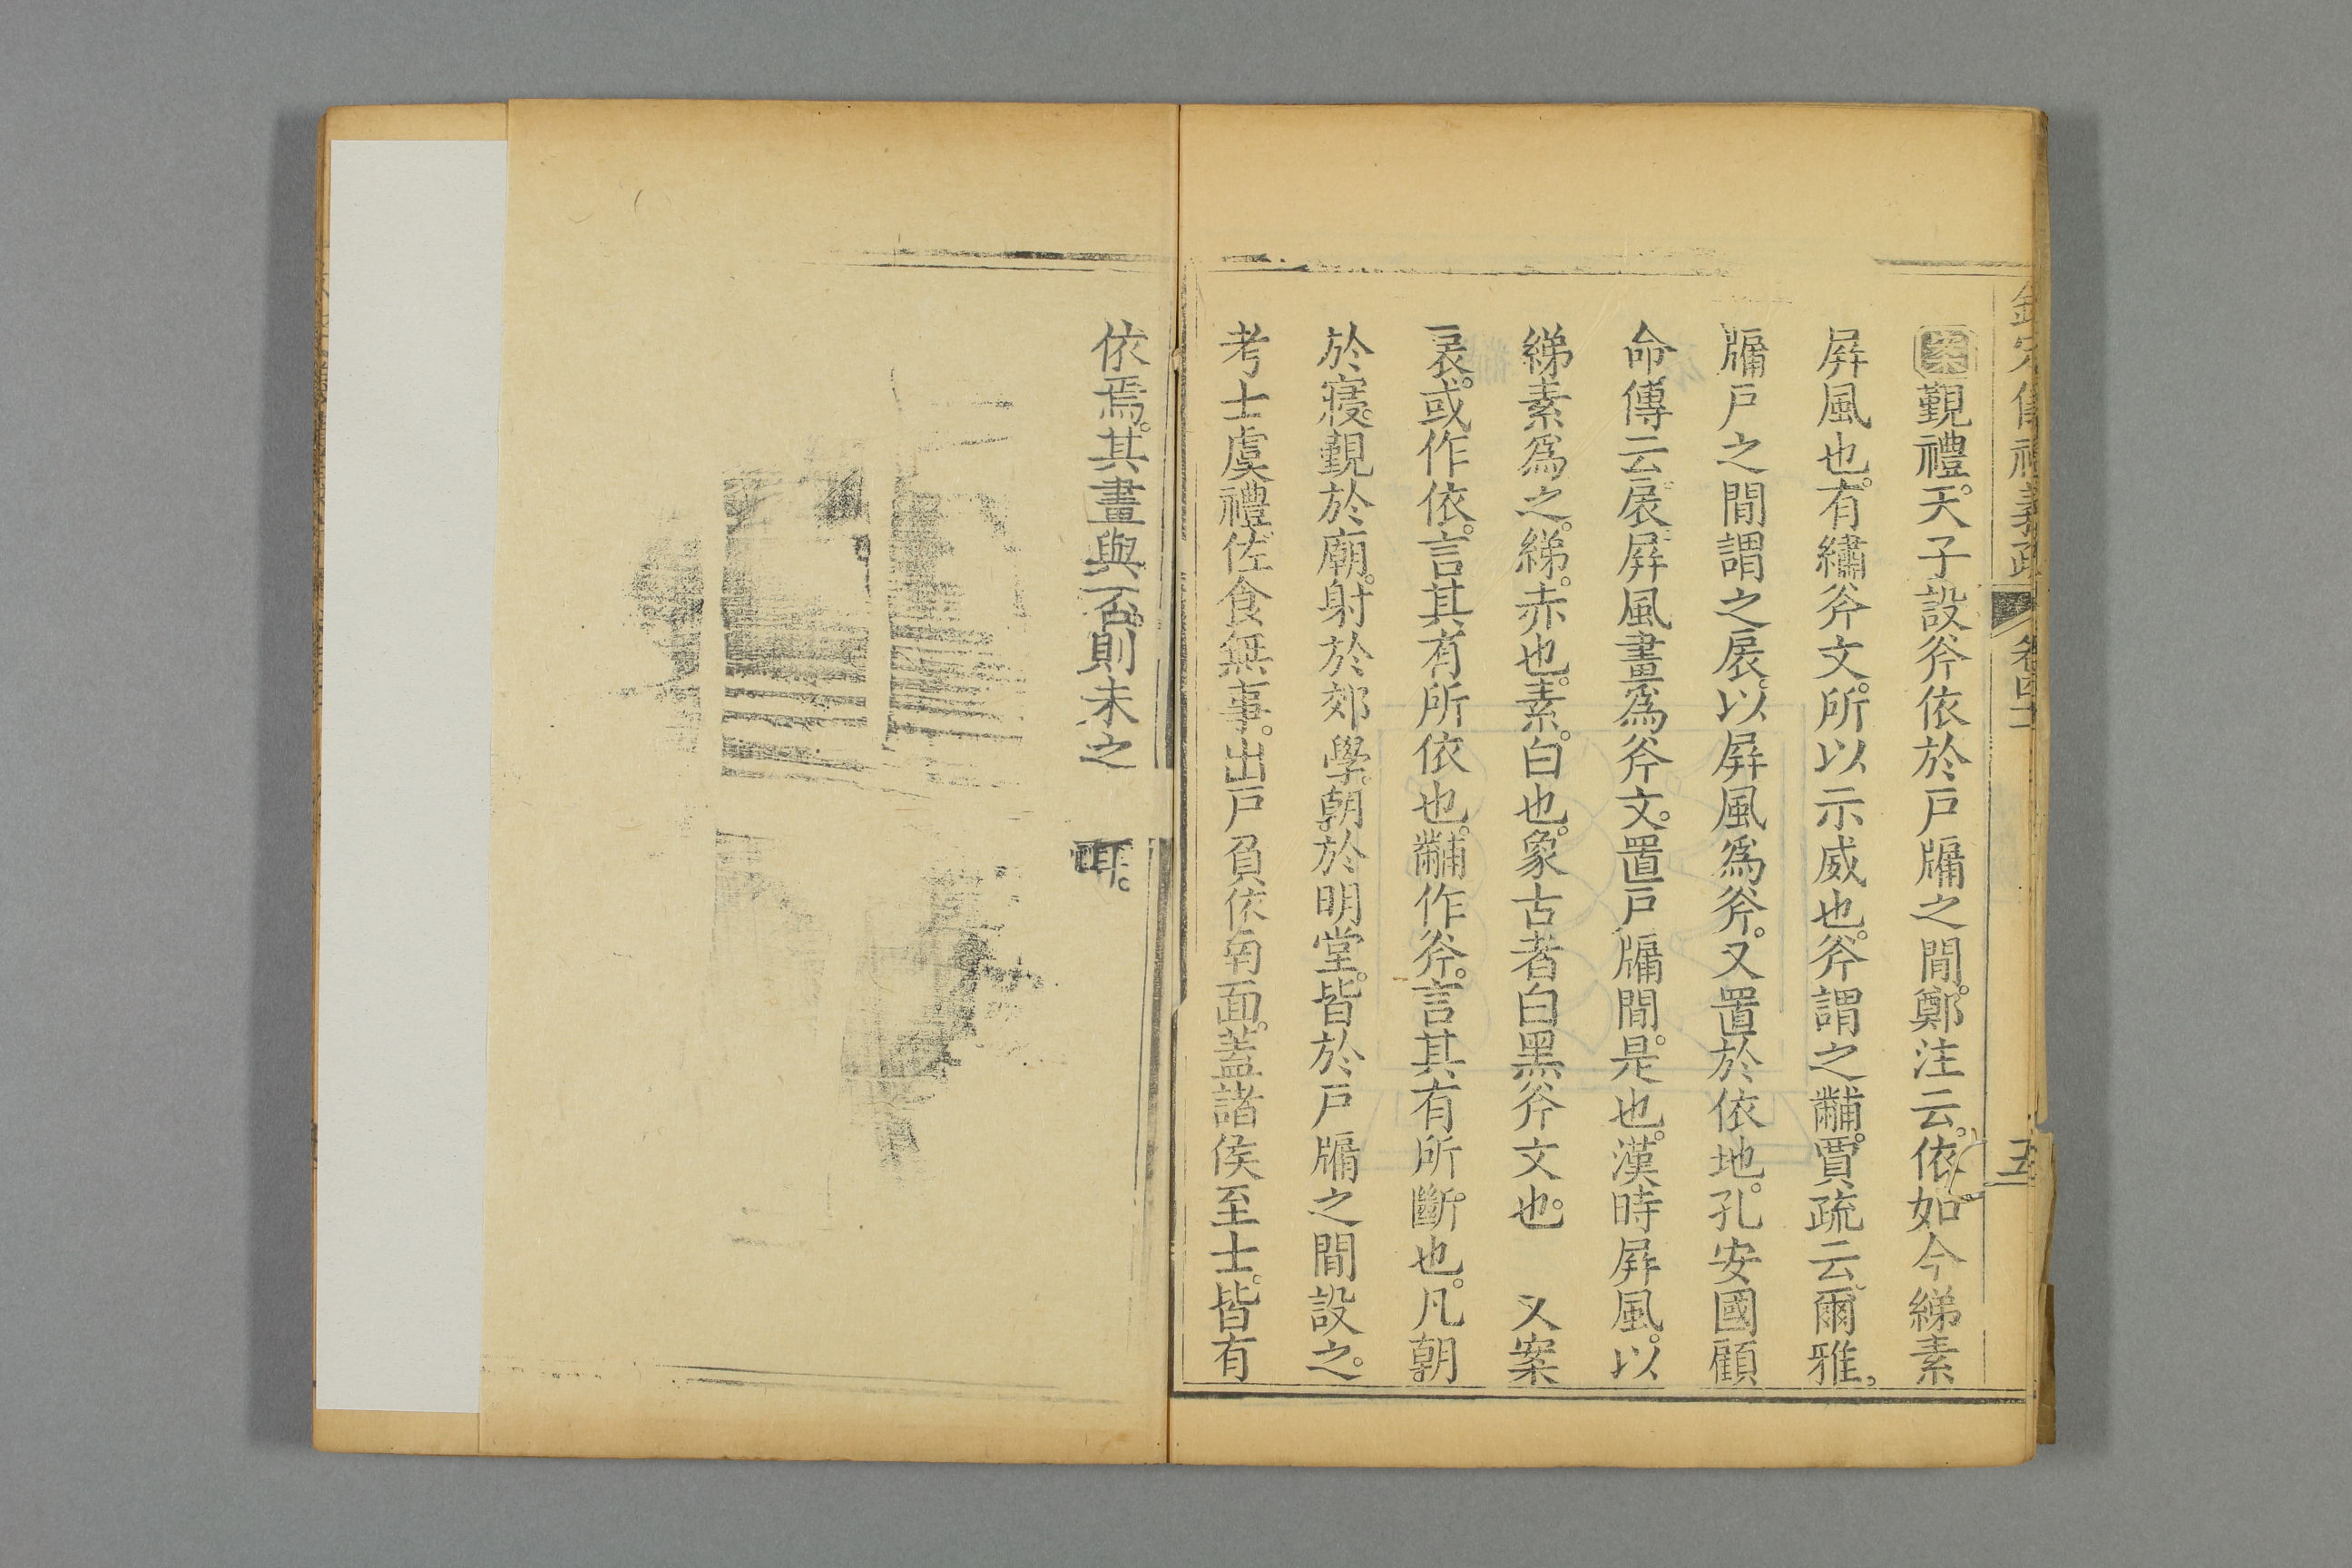 欽定儀禮義疏 卷四十 五
案覲禮。天子設斧依於戶牖之間。鄭注云。依。如今綈素
屛風也。有繡斧文。所以示威也。斧謂之黼。賈疏云。爾雅。
牖戶之間謂之扆。以屛風爲斧。又置於依地。孔安國顧
命傳云。扆。屛風畫爲斧文。置戶牖間。是也。漢時屛風。以
綈素爲之。綈。赤也。素。白也。象古者白黑斧文也。 又案
扆。或作依。言其有所依也。黼作斧。言其有所斷也。凡朝
於寢。覲於廟。射於郊學。朝於明堂。皆於戶牖之間設之。
考士虞禮。佐食無事。出戶負依南面。蓋諸侯至士。皆有
依焉。其畫與否。則未之
耳。